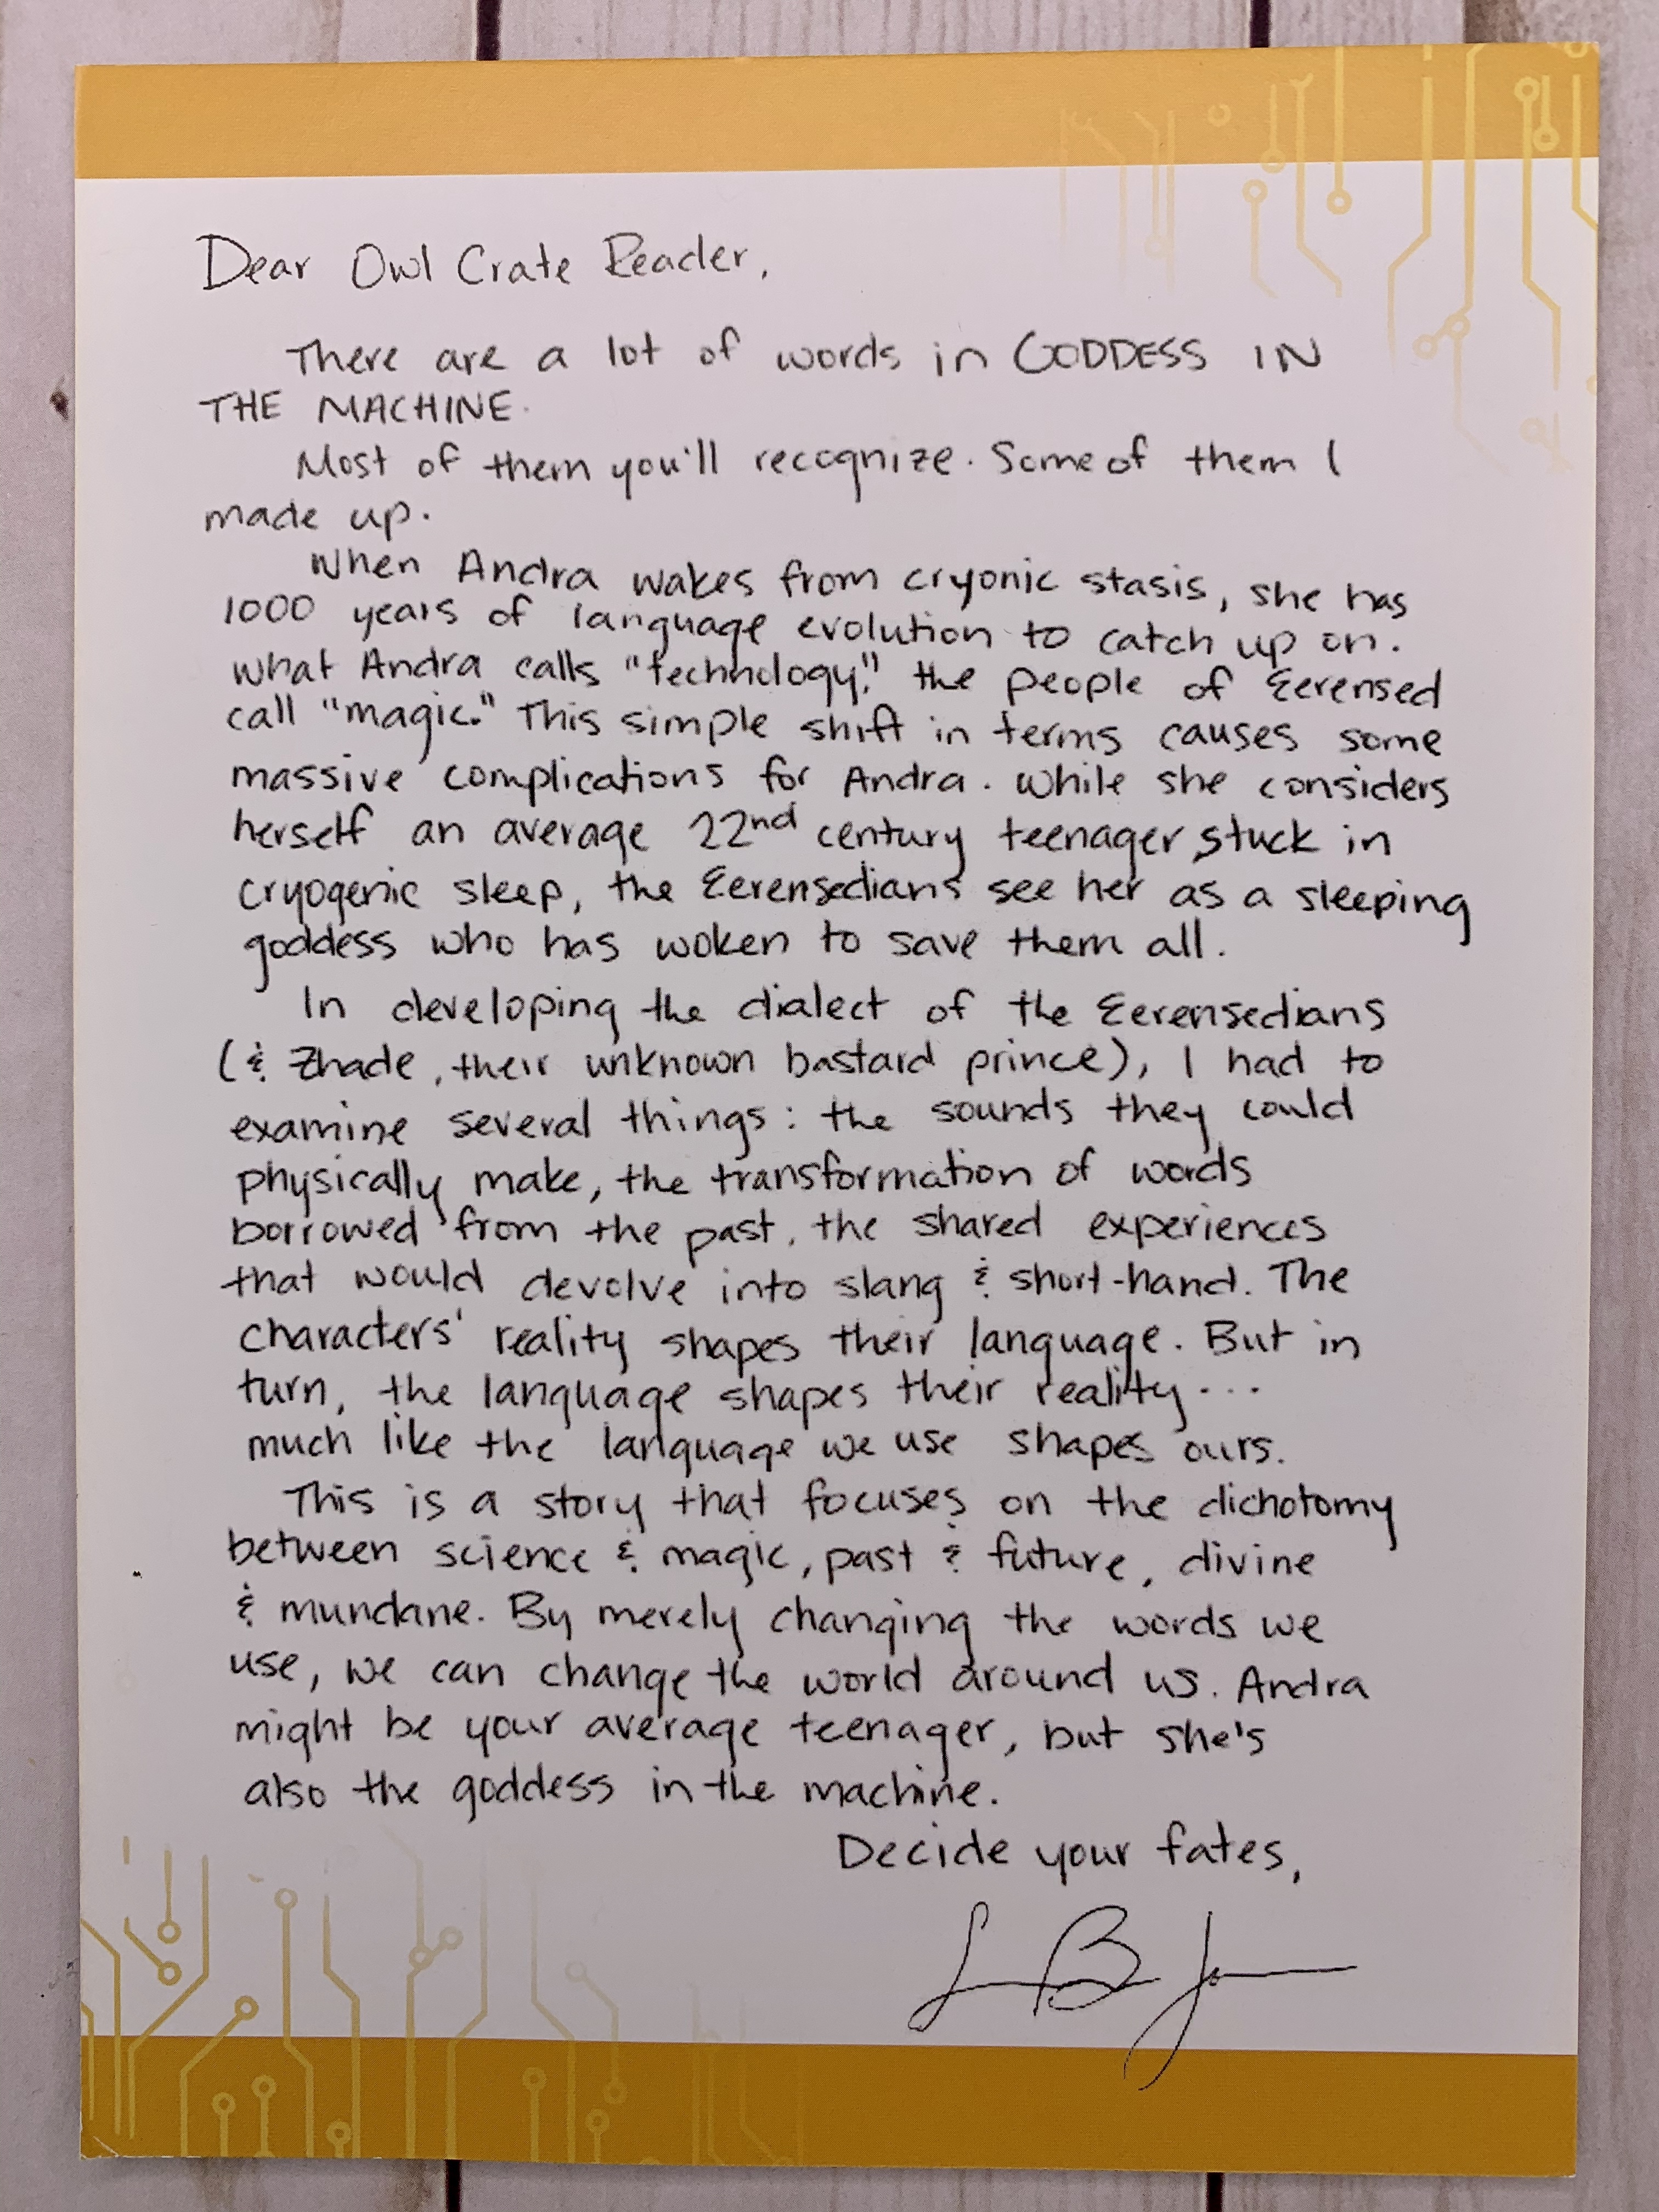 Dear Owl Crate Reader,
There are a lot of words in GODDESS IN
THE MACHINE.
Most of them you'll recognize. Some of them I
made up.
When Andra wakes from cryonic stasis, she has
1000 years of language evolution to catch up on.
What Andra calls "technology," the people of Eerensed
call "magic." This simple shift in terms causes some
massive complications for Andra. While she considers
herself an average 22nd century teenager stuck in
cryogenic sleep, the Eerensedians see her as a sleeping
goddess who has woken to save them all.
In developing the dialect of the Eerensedians
(& Zhade, their unknown bastard prince), I had to
examine several things: the sounds they could
physically make, the transformation of words
borrowed from the past, the shared experiences
that would devolve into slang & short-hand. The
characters' reality shapes their language. But in
turn, the language shapes their reality...
much like the language we use shapes ours.
This is a story that focuses on the dichotomy
between science & magic, past & future, divine
& mundane. By merely changing the words we
use, we can change the world around us. Andra
might be your average teenager, but she's
also the goddess in the machine.
Decide your fates,